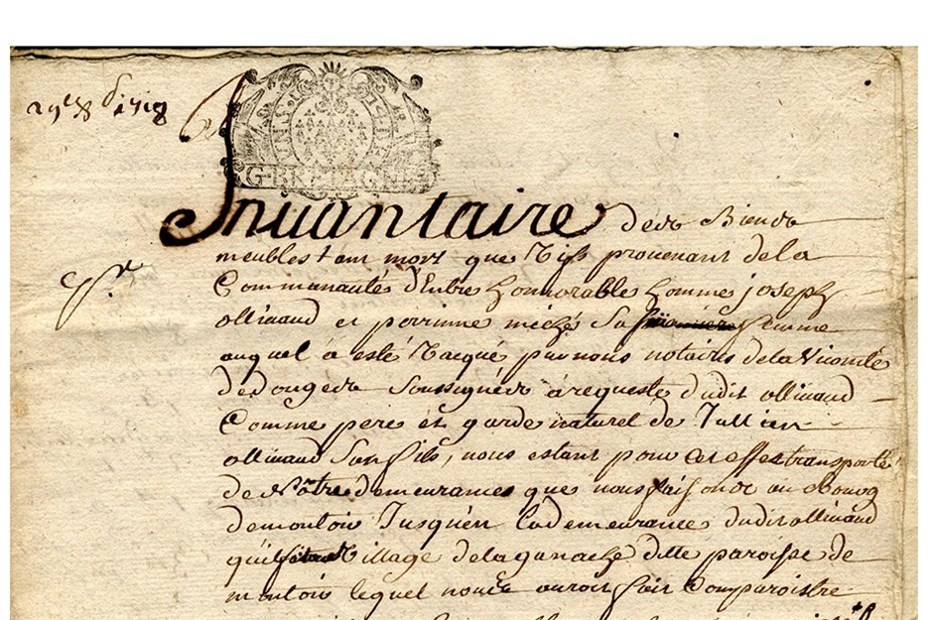 29e 8bre 1718
G. BRETAGNE
Inuantaire des Biens
meubles tant mort que vifs prouenant de la
Communauté d'Entre honnorable homme joseph
ollivaud et perrinne miché sa femme
auquel à esté vacqué par nous notaires de la Vicomté
de donges soussignés à requeste dudit ollivaud
Comme pere et garde naturel de Jullien
ollivaud son fils, nous estant pour cet effet transporté
de Nôtre demeurances que nous faisons au Bourg
de montois Jusqu'en la demeurance dudit ollivaud
qu'il village de la ganache ditte paroisse de
montois lequel nous auroit fait Comparoistre